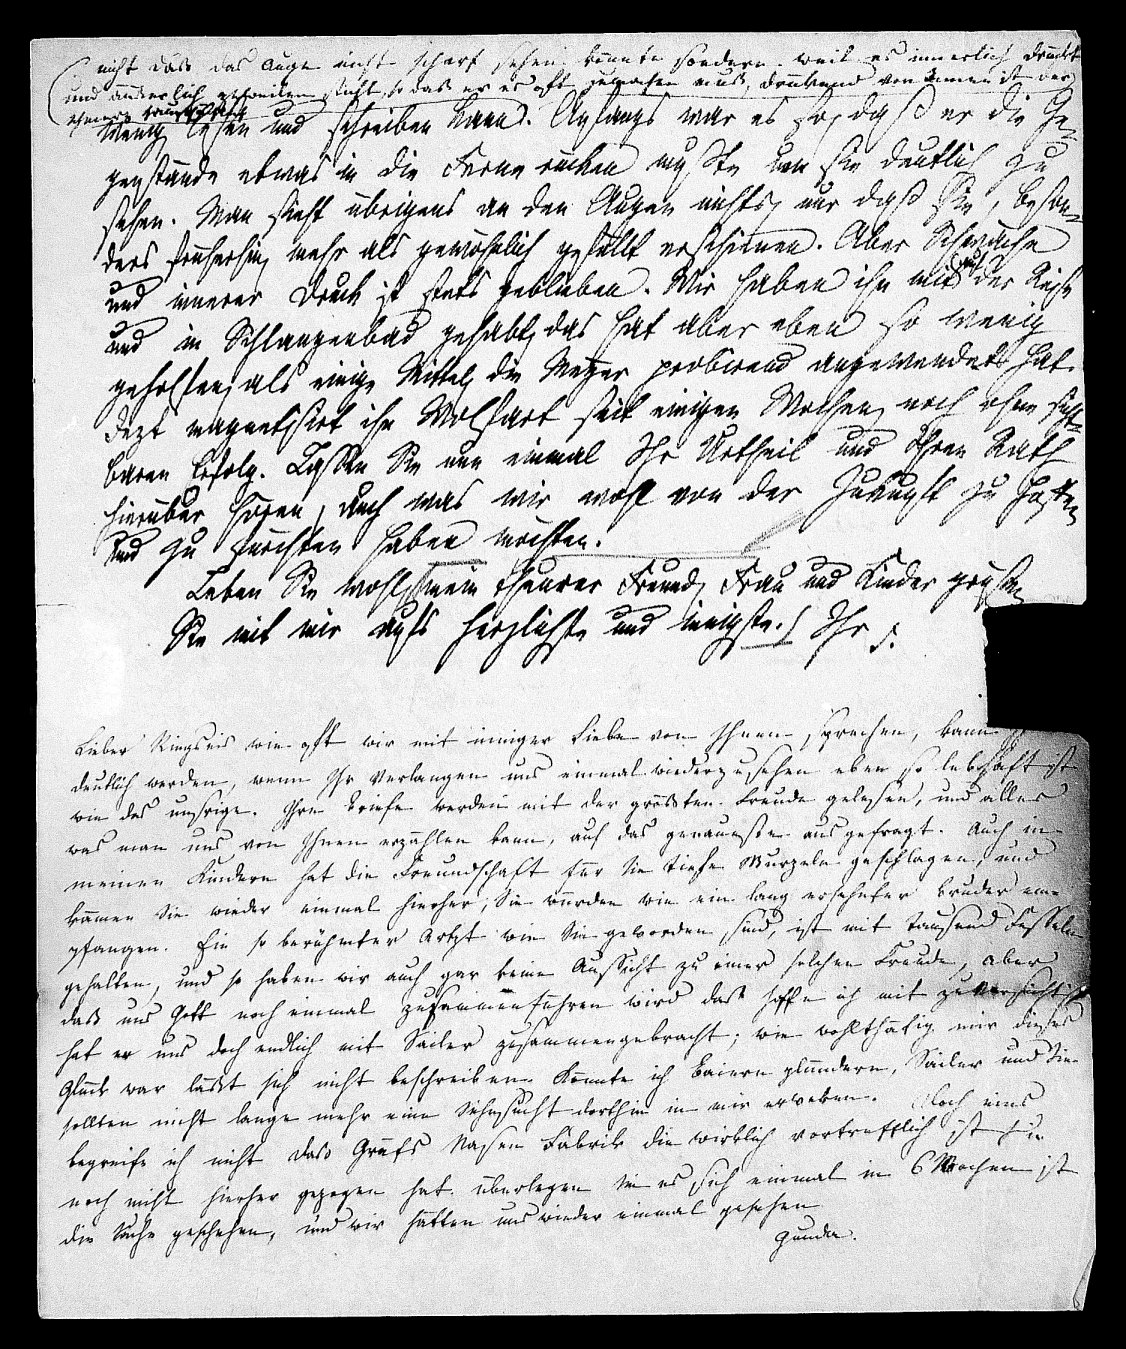 nicht dass das Auge nicht scharf sehen könnte sondern weil es innerlich drückt
und äusserlich zuweilen sticht, so dass er es oft zumachen muss, drückend von innen ist der
schmerz
wenig lesen und schreiben kann. Anfangs war es so, daß er die Ge-
genstände etwas in die Ferne rücken mußte um sie deutlich zu
sehen. Man sieht übrigens an den Augen nichts, nur daß sie, beson-
ders früherhin, mehr als gewöhnlich gefüllt erschienen. Aber Schwäche
und innerer Druck ist stets geblieben. Wir haben ihn mit auf der Reise
und in Schlangenbad gehabt, das hat aber eben so wenig
geholfen, als einige Mittel, die probirend angewendet hat.
Jezt magnetisirt ihn Wolfart seit einigen Wochen, noch ohne sicht-
baren Erfolg. Lassen Sie nun einmal Ihr Urtheil und Ihren Rath
hierüber hören, auch was wir wohl von der Zukunft zu hoffen
und zu fürchten haben möchten.
Leben Sie wohl, mein theurer Freund, Frau und Kinder grüßen
Sie mit mir aufs herzlichste und innigste. Ihr S.
Lieber Ringseis wie oft wir mit inniger Liebe von Ihnen sprechen, kann
deutlich werden, wenn Ihr Verlangen uns einmal wiederzusehen eben so lebhaft ist
wie das unsrige. Ihre Briefe werden mit der größten Freude gelesen, und alles
was man uns von Ihnen erzählen kann, auf das genaueste ausgefragt. Auch in
meinen Kindern hat die Freundschaft für Sie tiefe Wurzeln geschlagen, und
kämen Sie wieder einmal hierher, Sie würden wie ein lang ersehnter Bruder em-
pfangen. Ein so berühmter Artzt wie Sie geworden sind, ist mit tausend Fesseln
gehalten, und so haben wir auch gar keine Aussicht zu einer solchen Freude, aber
daß uns Gott noch einmal zusammenführen wird daß hoffe ich mit zuversicht
hat er uns doch endlich mit Sailer zusammengebracht; wie wohlthätig mir dieses
Glück war läßt sich nicht beschreiben. Könnte ich Baiern plündern, Sailer und Sie
sollten nicht lange mehr eine Sehnsucht dorthin in mir erweken. Noch eins
begreife ich nicht daß Gräfs Nasen Fabrik die wirklich vortrefflich ist Sie
noch nicht hierher gezogen hat. überlegen Sie es sich einmal in 6 Wochen ist
die Sache geschehen, und wir hätten uns wieder einmal gesehen
Gunda.